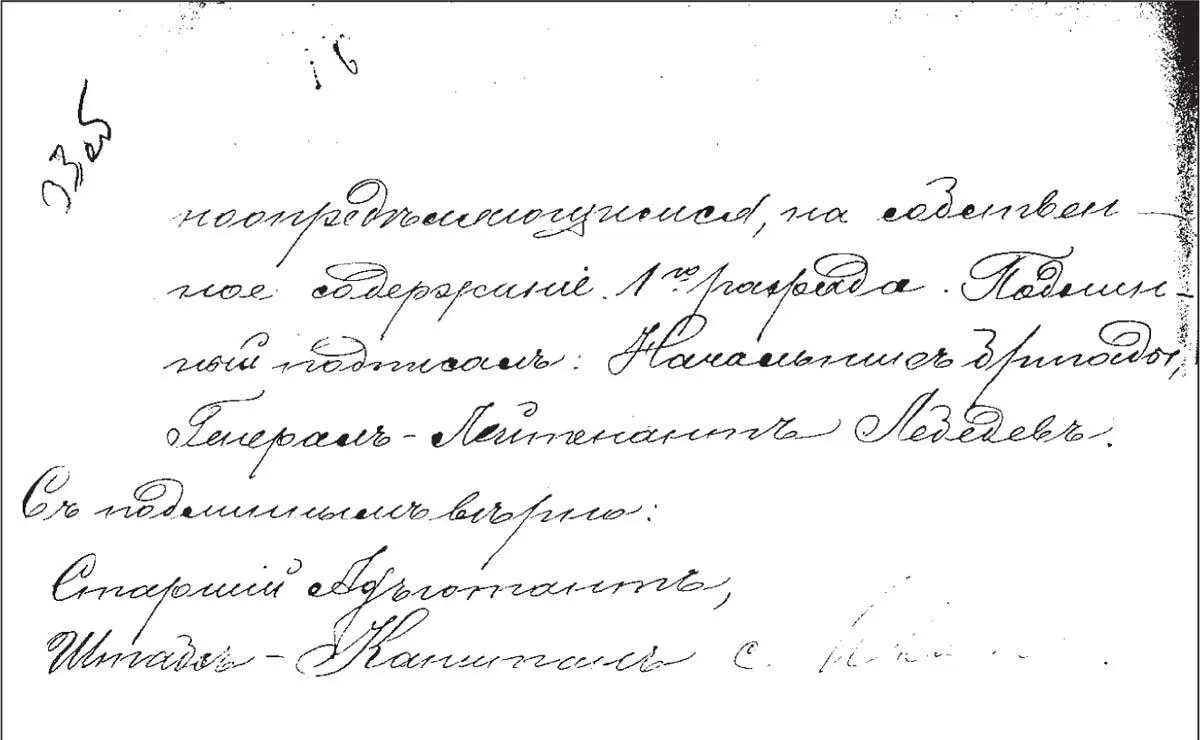 ноопредѣляющимися, на собствен-
ное содержаніе 1го разряда. Подлин-
ный подписалъ: Начальникъ бригады,
Генералъ-Лейтенантъ Лебедевъ.
Съ подлиннымъ вѣрно:
Старшій Адъютантъ,
Штабсъ-Капитанъ